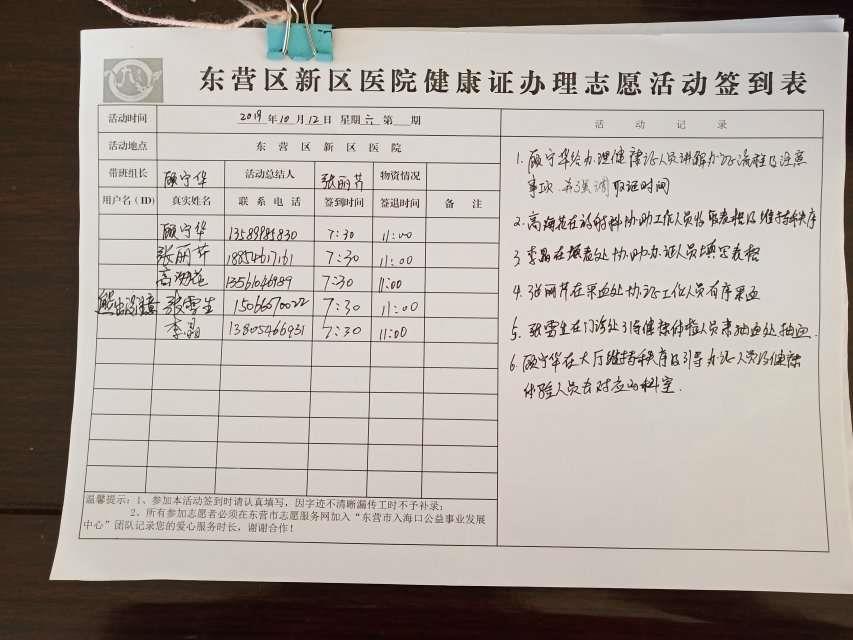 东营区新区医院健康证办理志愿活动签到表
活动时间 2019年10月12日 星期六 第 期
活动地点 东营区新区医院
带班组长 顾守华 活动总结人 张丽芹 物资情况
用户名(ID) 真实姓名 联系电话 签到时间 签退时间 备注
顾守华 13589981830 7:30 11:00
张丽芹 18854617161 7:30 11:00
高海花 13561046989 7:30 11:00
张雪生 15066570022 7:30 11:00
李晶 13805466931 7:30 11:00
温馨提示:1、参加本活动签到时请认真填写,因字迹不清晰漏传工时不予补录;
2、所有参加志愿者必须在东营市志愿服务网加入“东营市入海口公益事业发展
中心”团队记录您的爱心服务时长,谢谢合作!
活动记录
1. 顾守华给办理健康证人员讲解办证流程及注意
事项,并强调取证时间
2. 高海花在放射科协助工作人员收取表格及维持秩序
3 李晶在填表处协助办证人员填写表格
4. 张丽芹在采血处协证工作人员有序采血
5. 张雪生在门诊处引导健康体检人员来抽血处抽血.
6. 顾守华在大厅维持秩序及引导办证人员及健康
体验人员去对应的科室.